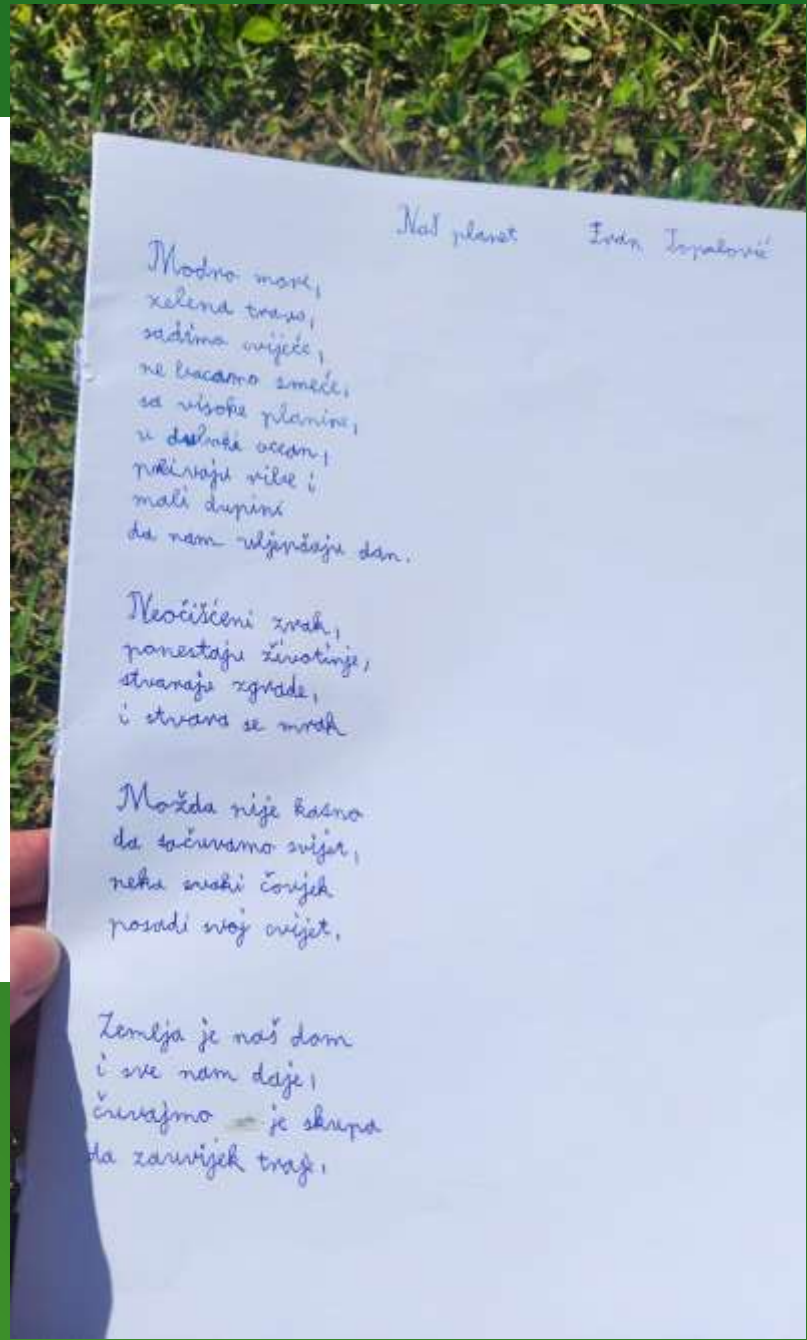 Naš planet Ivan Topalović
Modro more,
zelena trava,
sadimo cvijeće,
ne bacamo smeće,
sa visoke planine,
u duboki ocean,
plivaju ribe i
mali dupini
da nam uljepšaju dan.
Neočišćeni zrak,
ponestaju životinje,
stvaraju zgrade,
i stvara se mrak
Možda nije kasno
da sačuvamo svijet,
neka svaki čovjek
posadi svoj cvijet.
Zemlja je naš dom
i sve nam daje,
čuvajmo je skupa
da zauvijek traje.